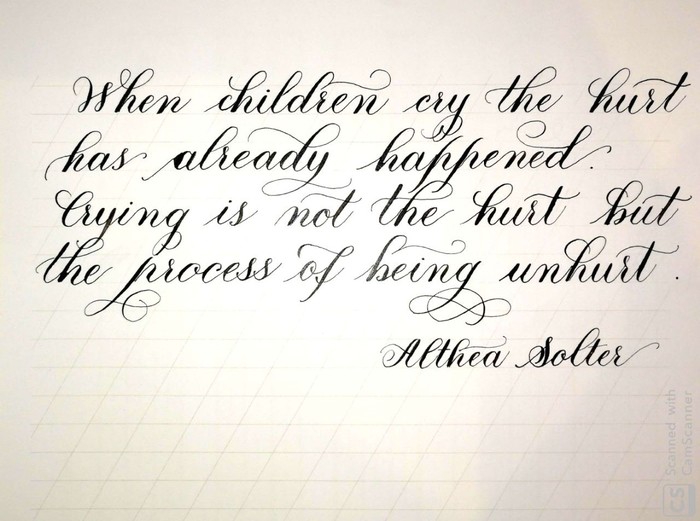 When children cry the hurt
has already happened.
Crying is not the hurt but
the process of being unhurt.
Althea Solter
CS
Scanned with
CamScanner